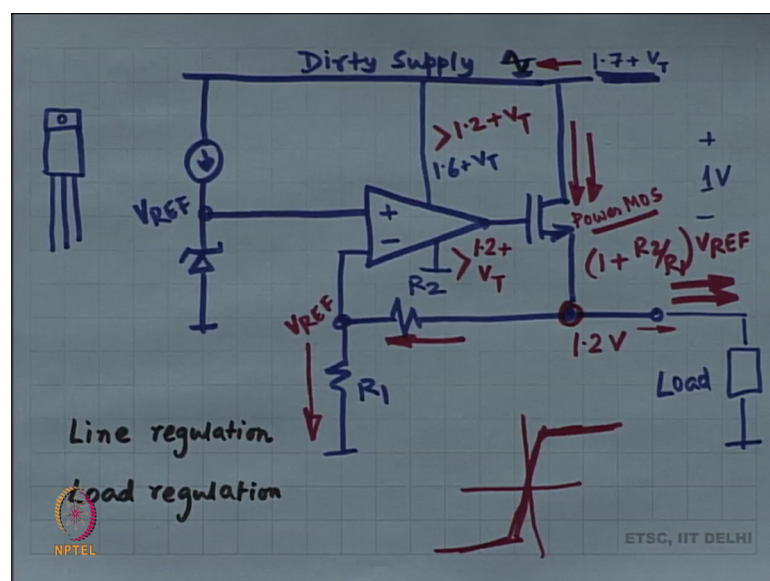 Dirty Supply
1.7 + VT
>1.2 + VT
1.6 + VT
+
1V
-
VREF
+
-
Power MOS
(1 + R2/R1) VREF
>1.2 + VT
R2
VREF
1.2 V
R1
Load
Line regulation
Load regulation
NPTEL
ETSC, IIT DELHI